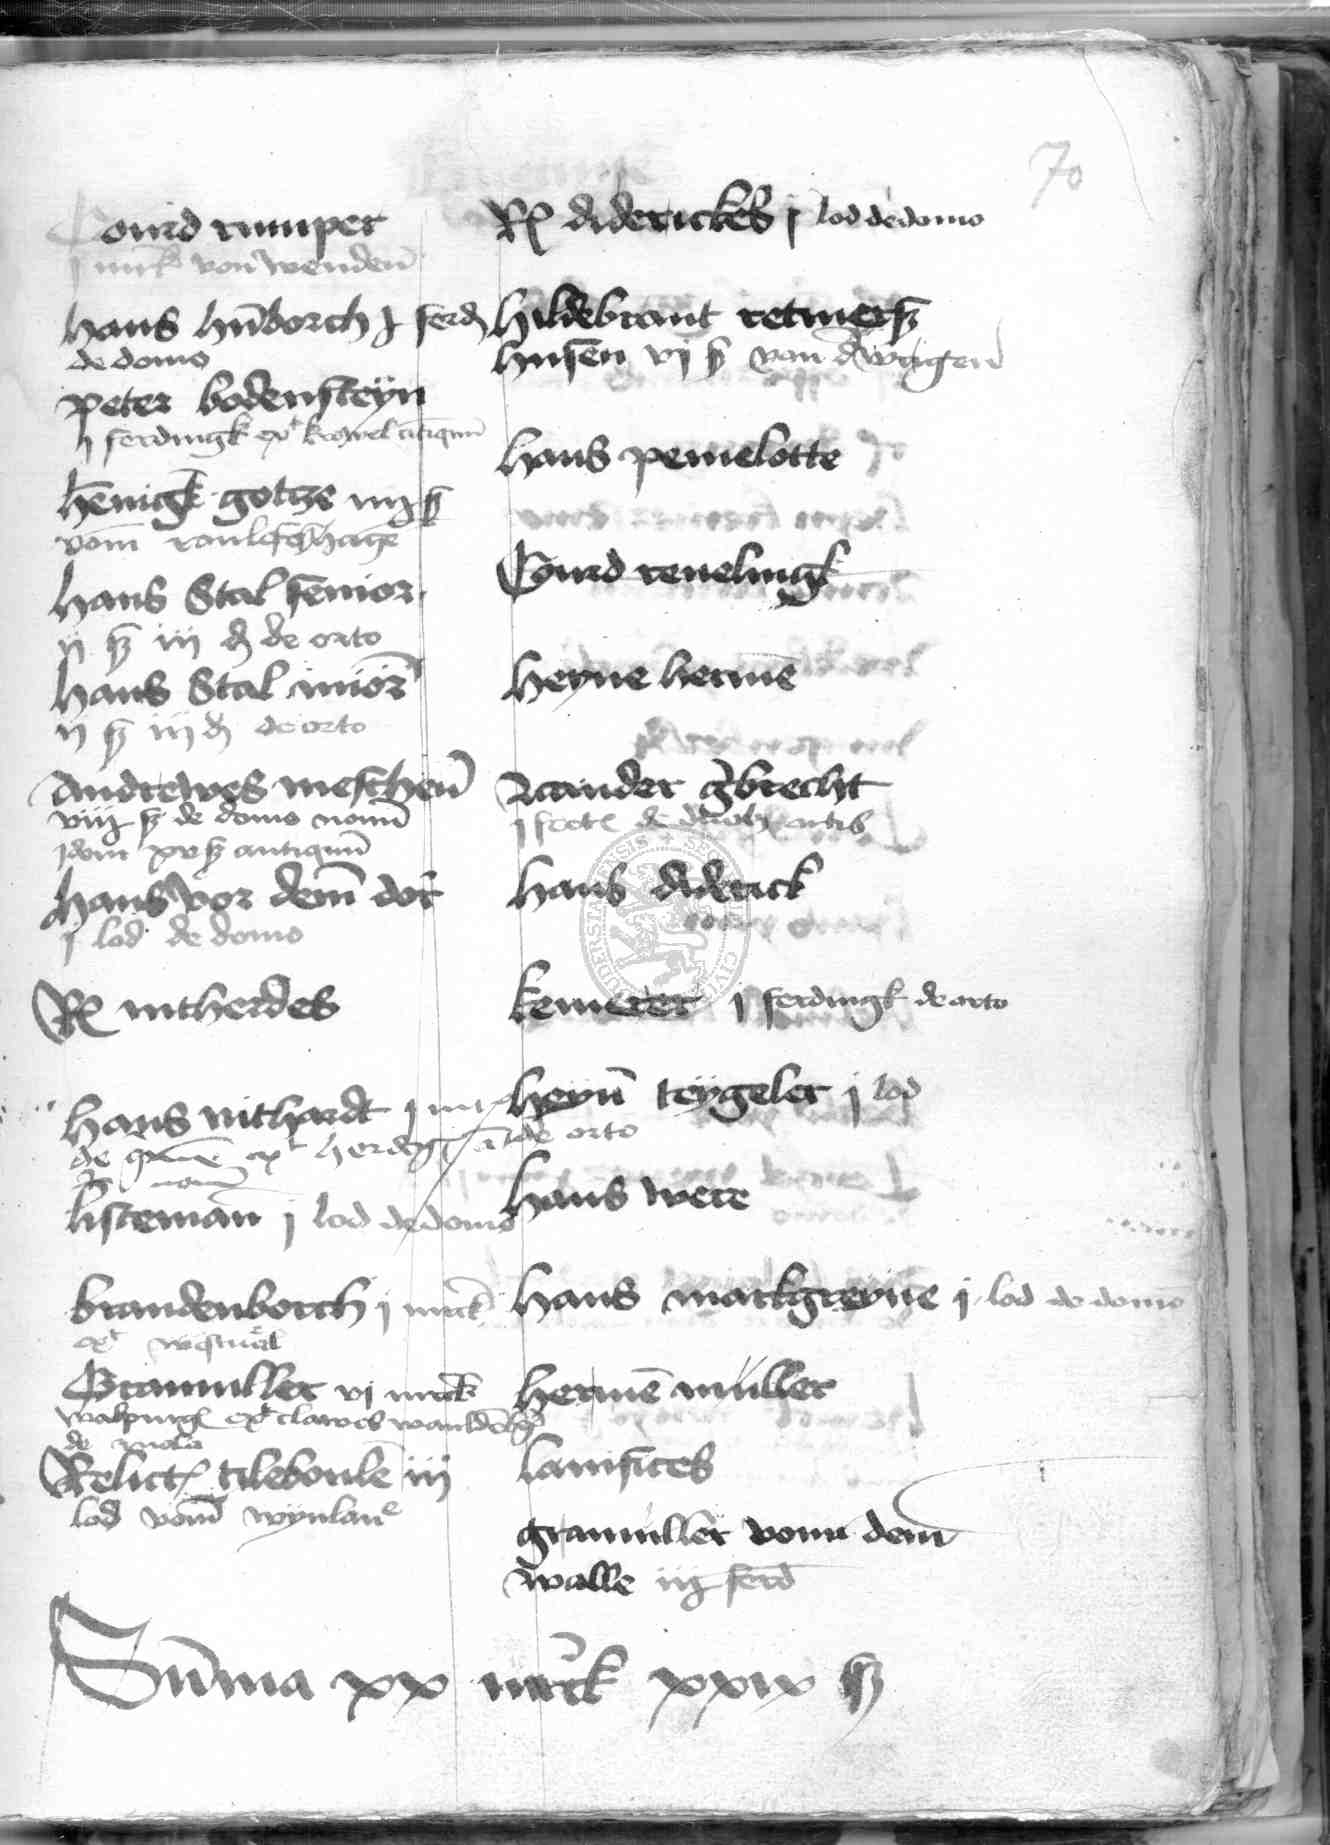 70
Courd rumper
j mrck von wenden
hans hu̅borch j ferd
de domo
peter bodensteyn
j ferdingk ex krowel antiquu̅
he̅nigk gotze iiij ß
vom̅
hans Stal senior
ij ß iij d de orto
hans Stal iu̅ior
ij ß iij d de orto
Andrewes meschen̅
viij ß de domo nouu̅
idem xv ß antiquu̅
hans vor dem̅ dor
j lod de domo
Rx nitherdes
hans nithardt j mr
de orto
listeman j lod de domo
brandenborch j mrck
Gramuller vj mrck
walpurg ex clawes
de mola
Relict tilebonle̅ iij
lod vom̅ wynlan
Rx diderickes j lod de domo
hildebrant retmerß
husen vj ß van d wagen
hans pemelotte
Courd renelingk
heyne herme̅
Xander gbrecht
hans diderick
kemerer j ferdingk de orto
heyn̅ teygeler j lod
hans were
hans markgreyue j lod de domo
herme̅ muller
lanifices
gramuller vonn dem
walle iij ferd
Su̅ma xx mrck xxix ß